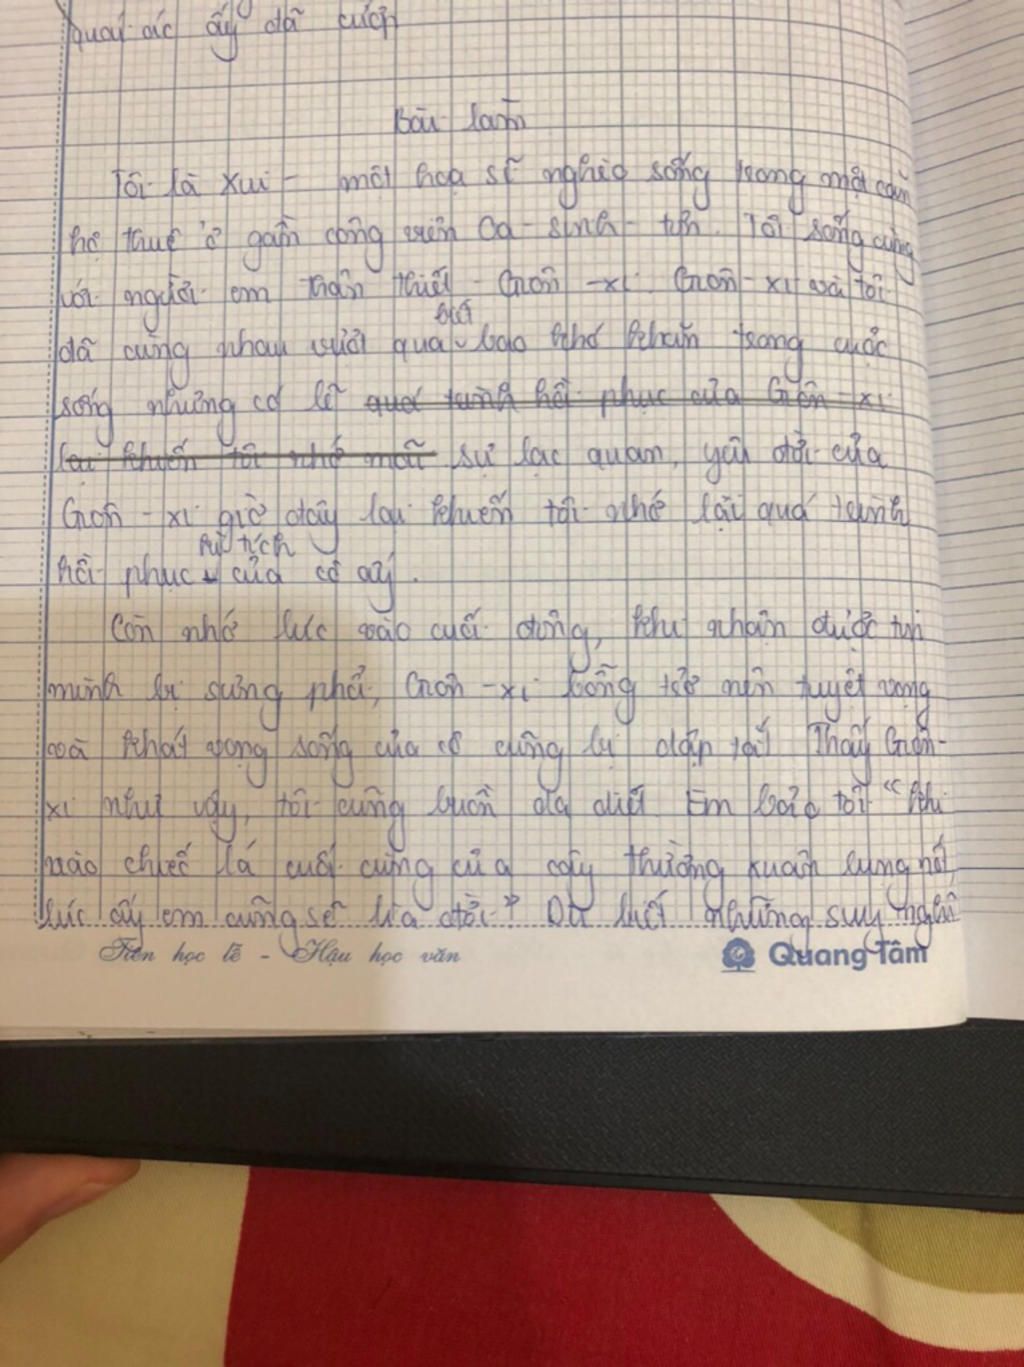 quai ác ấy đã cướp
Bài làm
Tôi là Xui - một hoạ sĩ nghèo sống trong một căn
hộ thuê ở gần công viên Oa-sinh-tơn. Tôi sống cùng
với người em thân thiết - Giôn-xi. Giôn-xi và tôi
biết
đã cùng nhau vượt qua bao khó khăn trong cuộc
sống nhưng có lẽ quá trình hồi phục của Giôn-xi
lại khiến tôi nhớ mãi sự lạc quan, yêu đời của
Giôn-xi giờ đây lại khiến tôi nhớ lại quá trình
kì tích
hồi phục của cô ấy.
Còn nhớ lúc vào cuối đông, khi nhận được tin
mình bị sưng phổi, Giôn-xi bỗng trở nên tuyệt vọng
và khát vọng sống của cô cũng bị dập tắt. Thấy Giôn-
xi như vậy, tôi cũng buồn da diết. Em bảo tôi "khi
nào chiếc lá cuối cùng của cây thường xuân rụng hết
lúc ấy em cũng sẽ lìa đời". Dù biết những suy nghĩ
Tiên học lễ - Hậu học văn
Quang Tâm